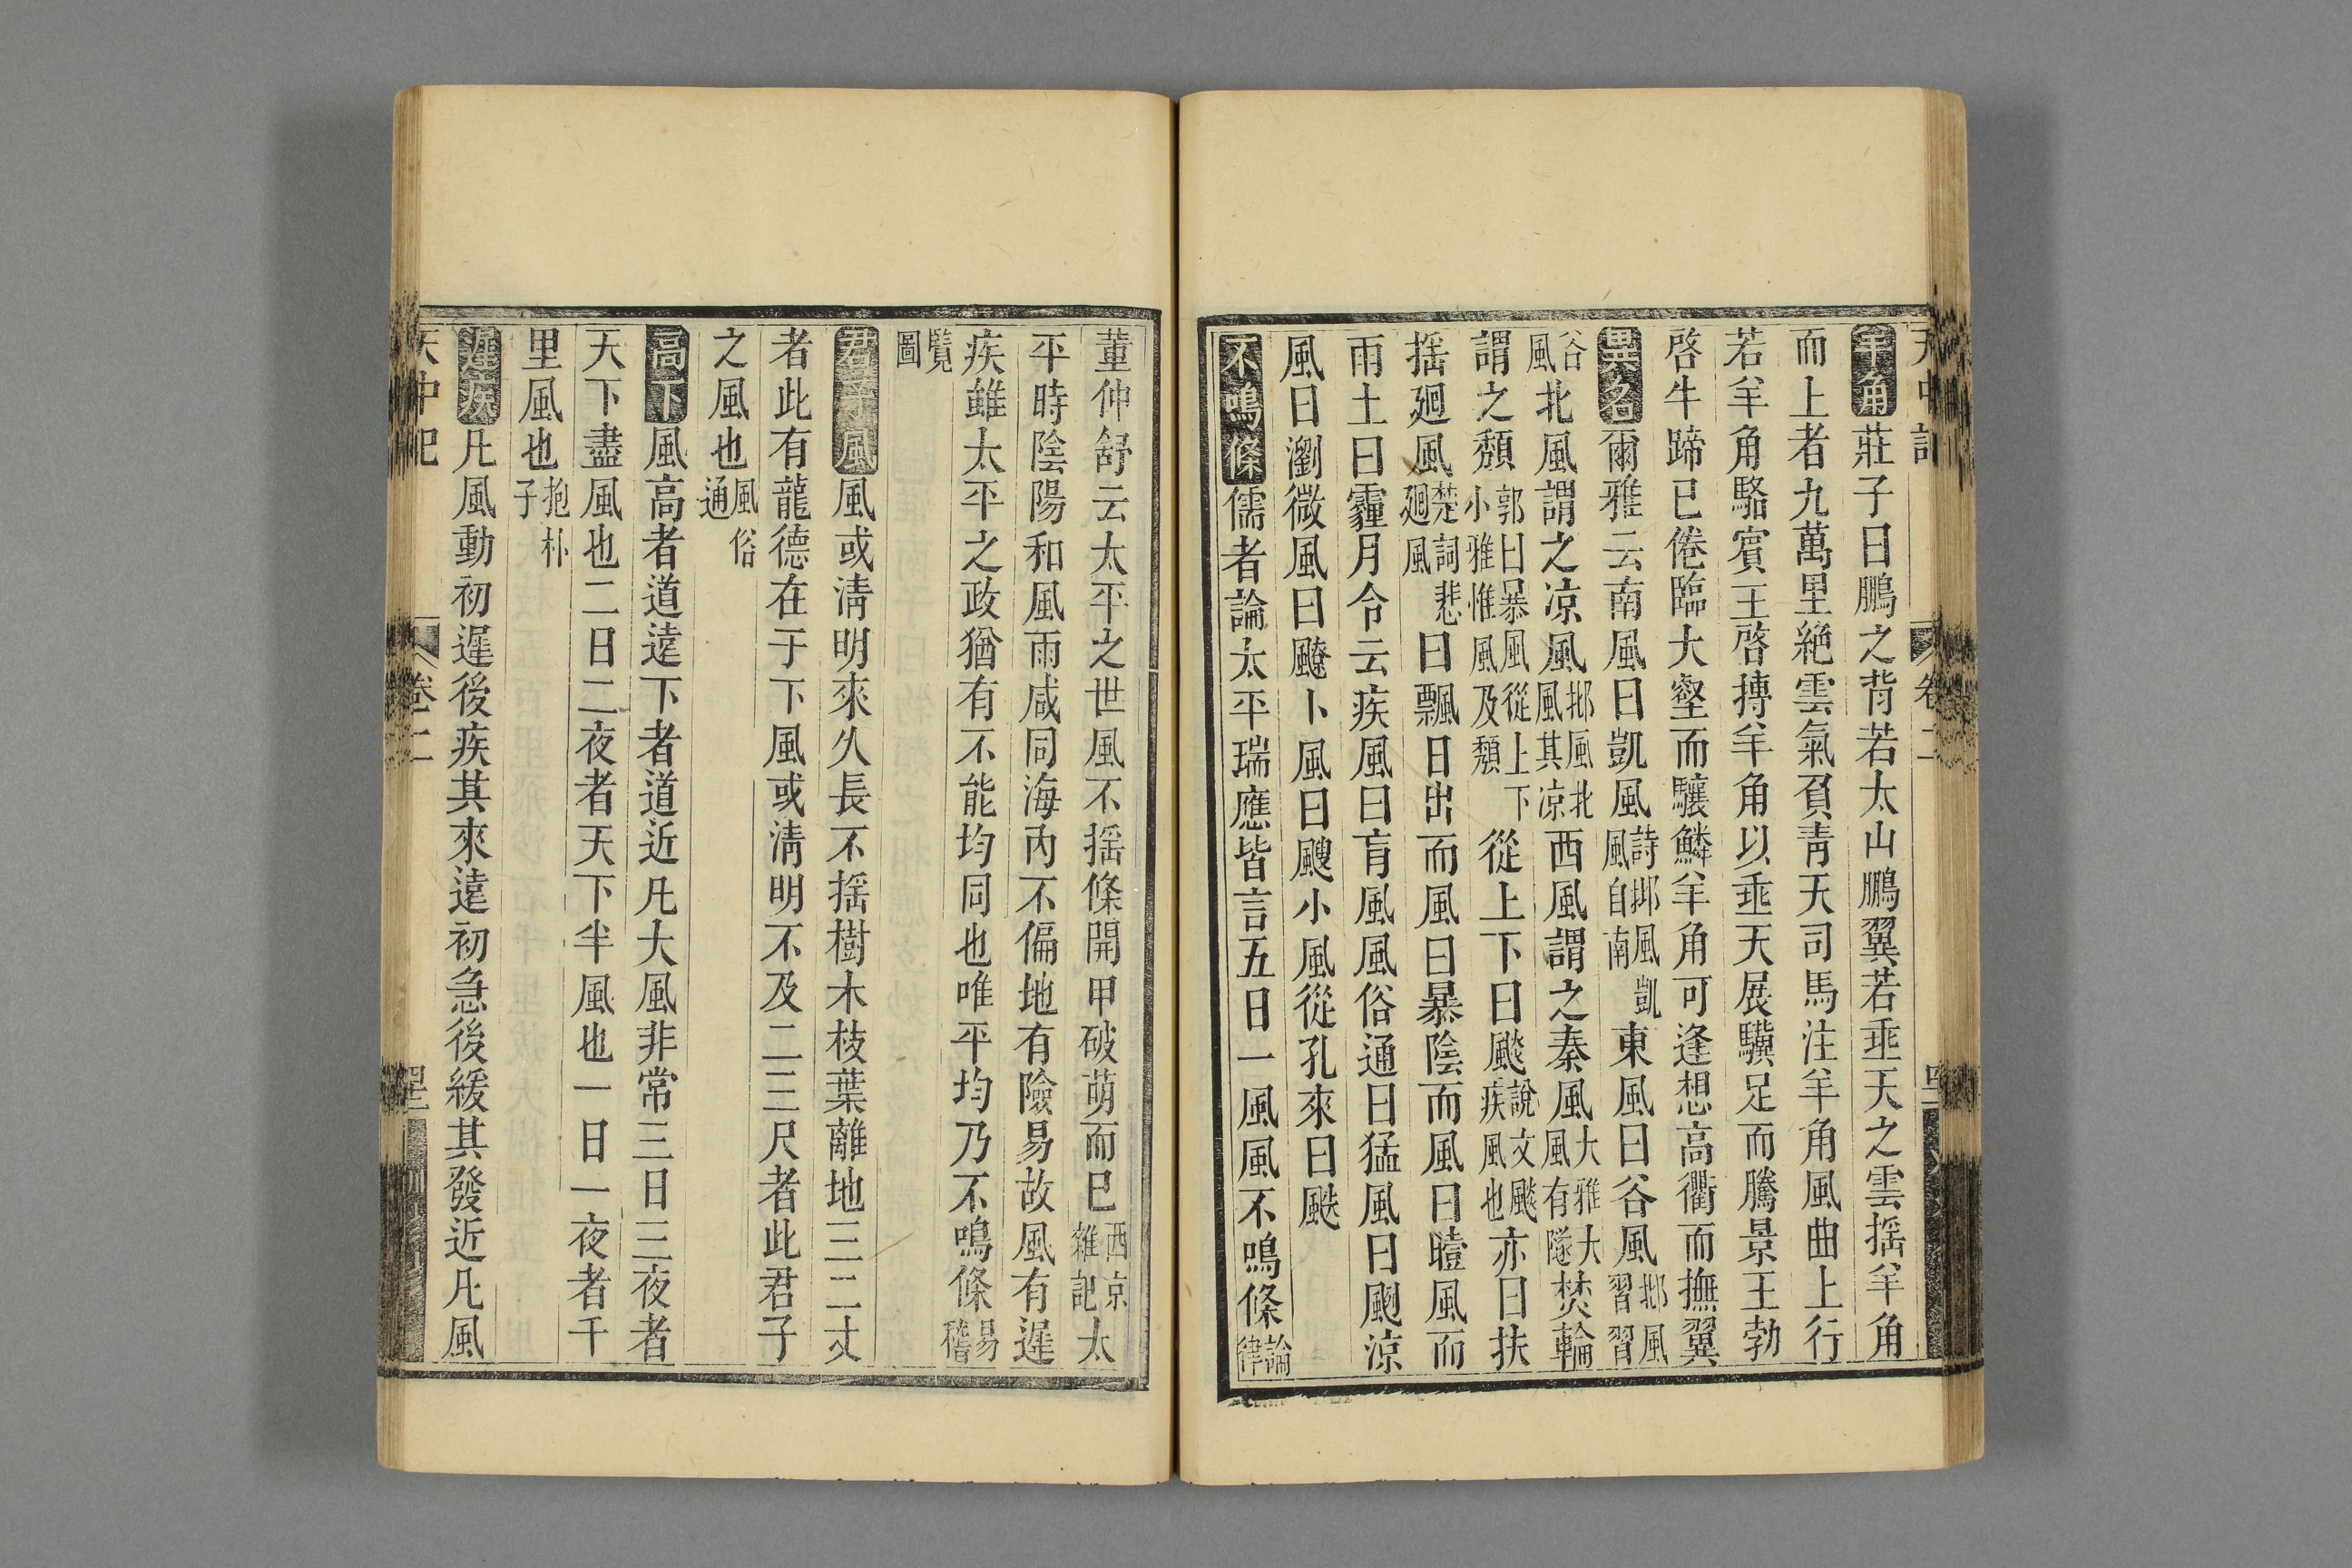 天中記 卷二
羊角莊子曰鵬之背若太山鵬翼若垂天之雲揺羊角
而上者九萬里絶雲氣負青天司馬注羊角風曲上行
若羊角駱賓王啓摶羊角以垂天展驥足而騰景王勃
啓牛蹄已倦臨大壑而驤鱗羊角可逢想高衢而撫翼
異名爾雅云南風曰凱風詩邶風凱風自南東風曰谷風邶風習習
谷風北風謂之凉風邶風北風其凉西風謂之泰風大雅大風有隧焚輪
謂之頽郭曰暴風從上下小雅惟風及頽從上下曰飈說文飈疾風也亦曰扶
揺廻風楚詞悲廻風曰飄日出而風曰暴陰而風曰曀風而
雨土曰霾月令云疾風曰盲風風俗通曰猛風曰颲凉
風曰瀏微風曰飉卜風曰颼小風從孔來曰䬆
不鳴條儒者論太平瑞應皆言五日一風風不鳴條論律
董仲舒云太平之世風不揺條開甲破萌而巳西京雜記太
平時陰陽和風雨咸同海内不偏地有險易故風有遲
疾雖太平之政猶有不能均同也唯平均乃不鳴條易稽
覽圖
君子風風或淸明來久長不揺樹木枝葉離地三二丈
者此有龍德在于下風或淸明不及二三尺者此君子
之風也風俗通
高下風高者道遠下者道近凡大風非常三日三夜者
天下盡風也二日二夜者天下半風也一日一夜者千
里風也抱朴子
遲疾凡風動初遲後疾其來遠初急後緩其發近凡風
天中記 卷二